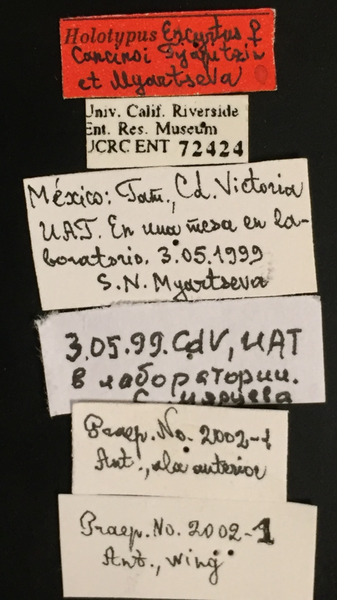 Holotypus Encyrtus ♀
Cancinoi Tyapitzin
et Myartseva
Univ. Calif. Riverside
Ent. Res. Museum
UCRC ENT 72424
México: Tam., Cd. Victoria
UAT. En una mesa en la-
boratorio. 3.05.1999
S.N. Myartseva
3.05.99. CdV, UAT
в лаборатории.
С. Мярцева
Praep. No. 2002-1
Ant., ala anterior
Praep. No. 2002-1
Ant., wing